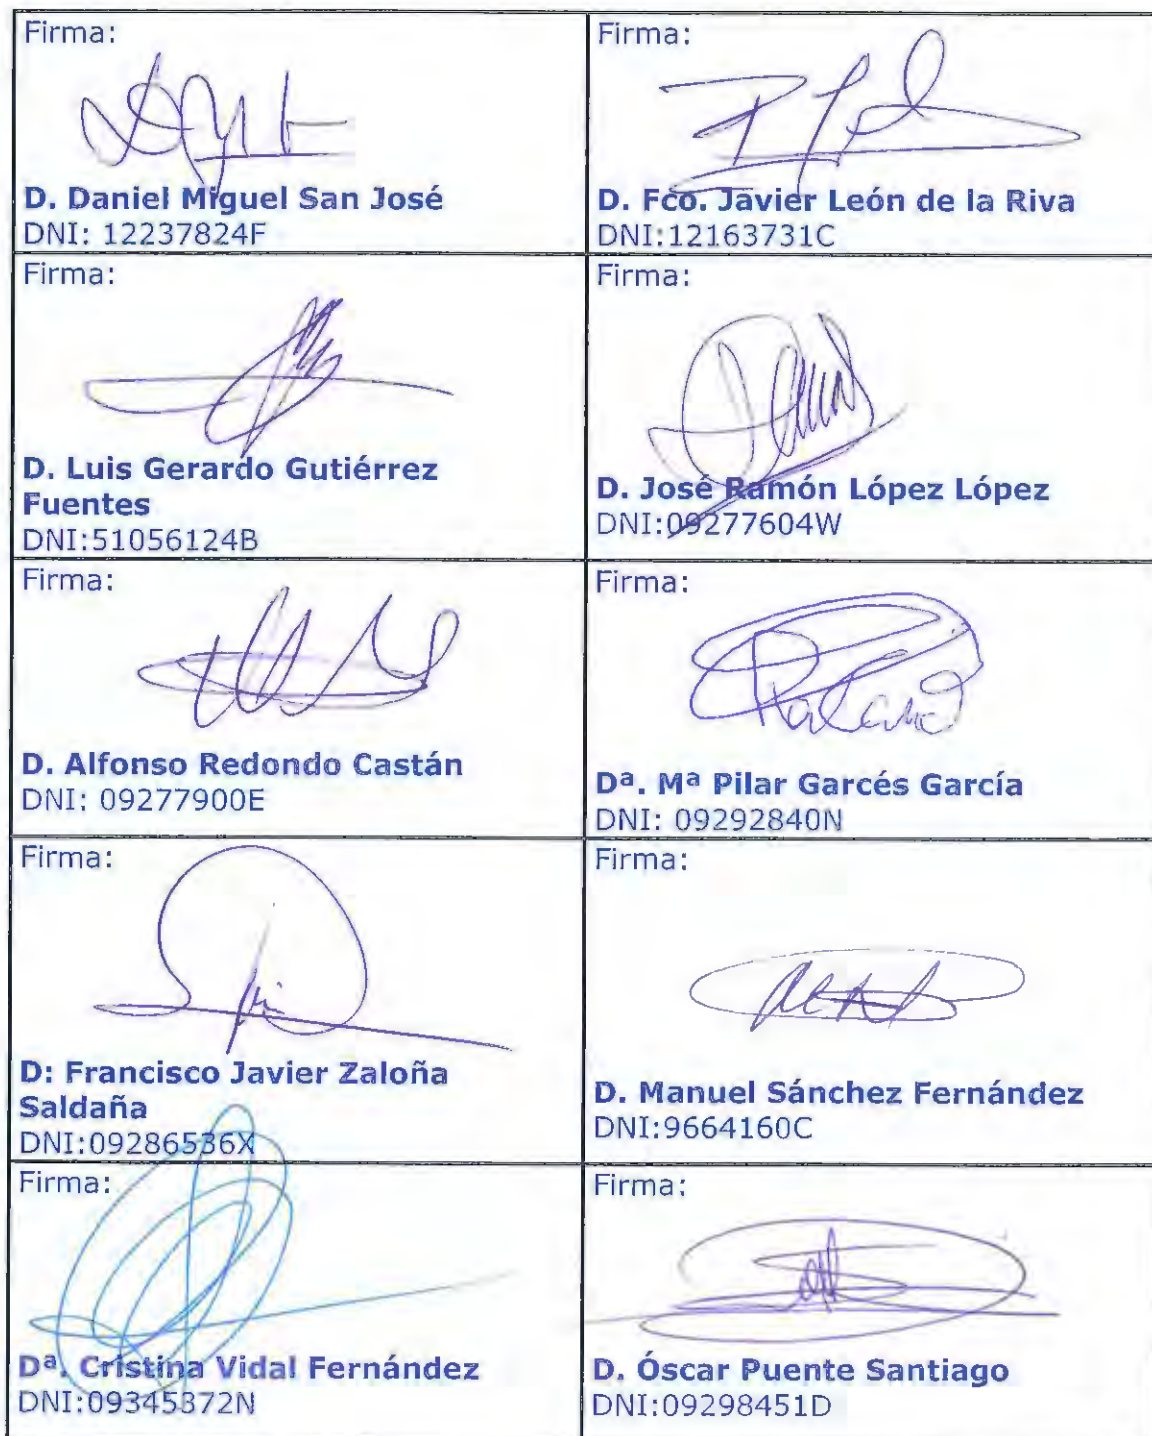 Firma:
D. Daniel Miguel San José
DNI: 12237824F
Firma:
D. Fco. Javier León de la Riva
DNI:12163731C
Firma:
D. Luis Gerardo Gutiérrez
Fuentes
DNI:51056124B
Firma:
D. José Ramón López López
DNI:09277604W
Firma:
D. Alfonso Redondo Castán
DNI: 09277900E
Firma:
Dª. Mª Pilar Garcés García
DNI: 09292840N
Firma:
D: Francisco Javier Zaloña
Saldaña
DNI:09286536X
Firma:
D. Manuel Sánchez Fernández
DNI:9664160C
Firma:
Dª. Cristina Vidal Fernández
DNI:09345372N
Firma:
D. Óscar Puente Santiago
DNI:09298451D